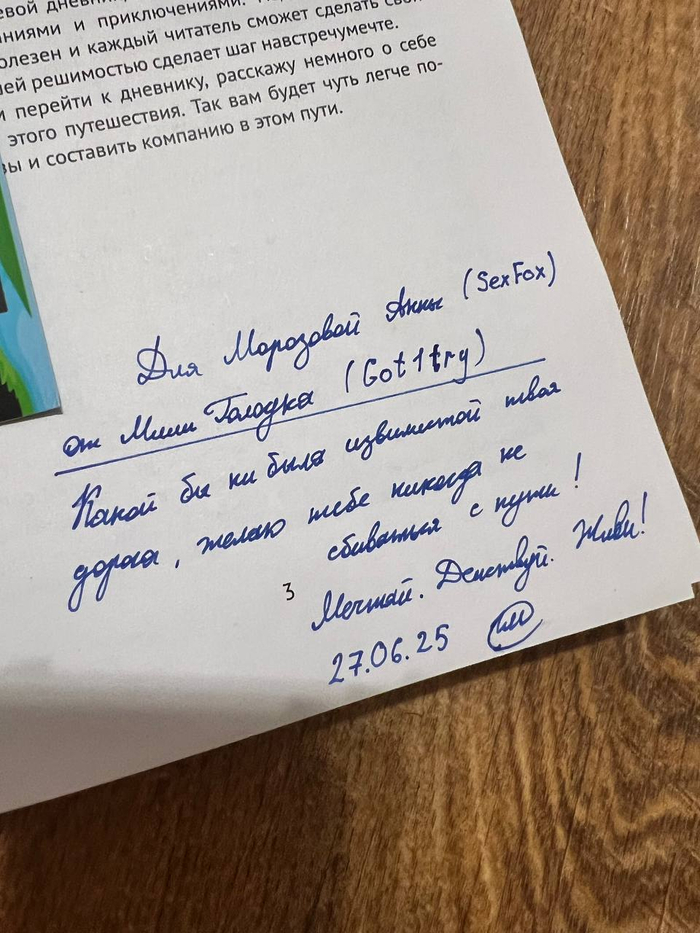 евой дневни
ниями и приключениями.
олезен и каждый читатель сможет сделать
ей решимостью сделает шаг навстречумечте.
и перейти к дневнику, расскажу немного о себе
этого путешествия. Так вам будет чуть легче по-
ы и составить компанию в этом пути.
Для Морозовой Анны (SexFox)
от Миши Голодка (Got1try)
Какой бы ни была извилистой твоя
дорога, желаю тебе никогда не
сбиваться с пути!
3
Мечтай. Действуй. Живи!
27.06.25